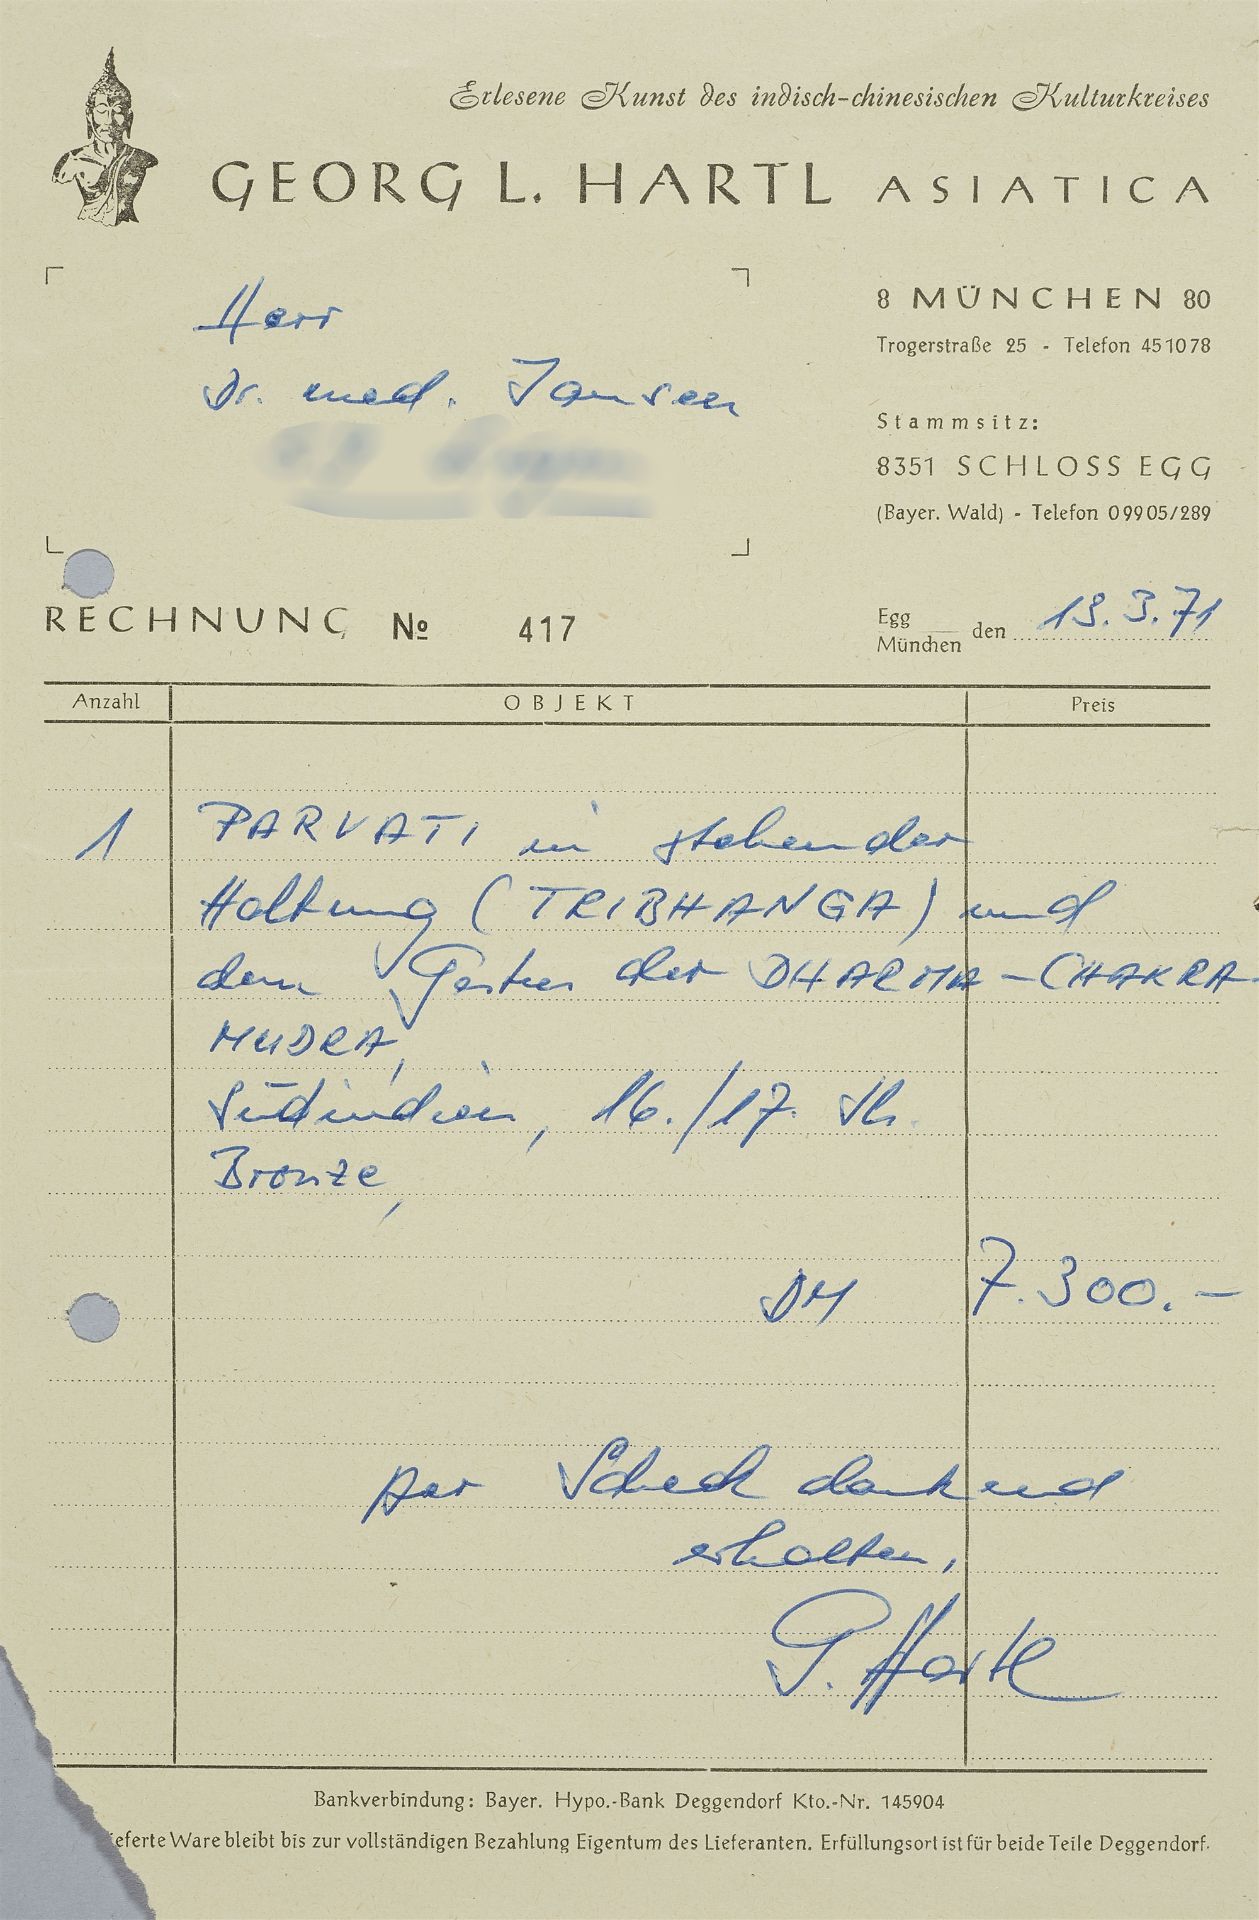 Erlesene Kunst des indisch-chinesischen Kulturkreises
GEORG L. HARTL ASIATICA
Herr
Dr. med. Jansen
8 MÜNCHEN 80
Trogerstraße 25 - Telefon 451078
Stammsitz:
8351 SCHLOSS EGG
(Bayer. Wald) - Telefon 09905/289
RECHNUNG № 417
Egg
München den 13.3.71
Anzahl OBJEKT Preis
1 PARVATI in stehender
Haltung (TRIBHANGA) und
dem Gestus der DHARMA-CHAKRA-
MUDRA,
Südindien, 16./17. Jh.
Bronze,
DM 7.300.-
per Scheck dankend
erhalten,
G. Hartl
Bankverbindung: Bayer. Hypo.-Bank Deggendorf Kto.-Nr. 145904
ieferte Ware bleibt bis zur vollständigen Bezahlung Eigentum des Lieferanten. Erfüllungsort ist für beide Teile Deggendorf.